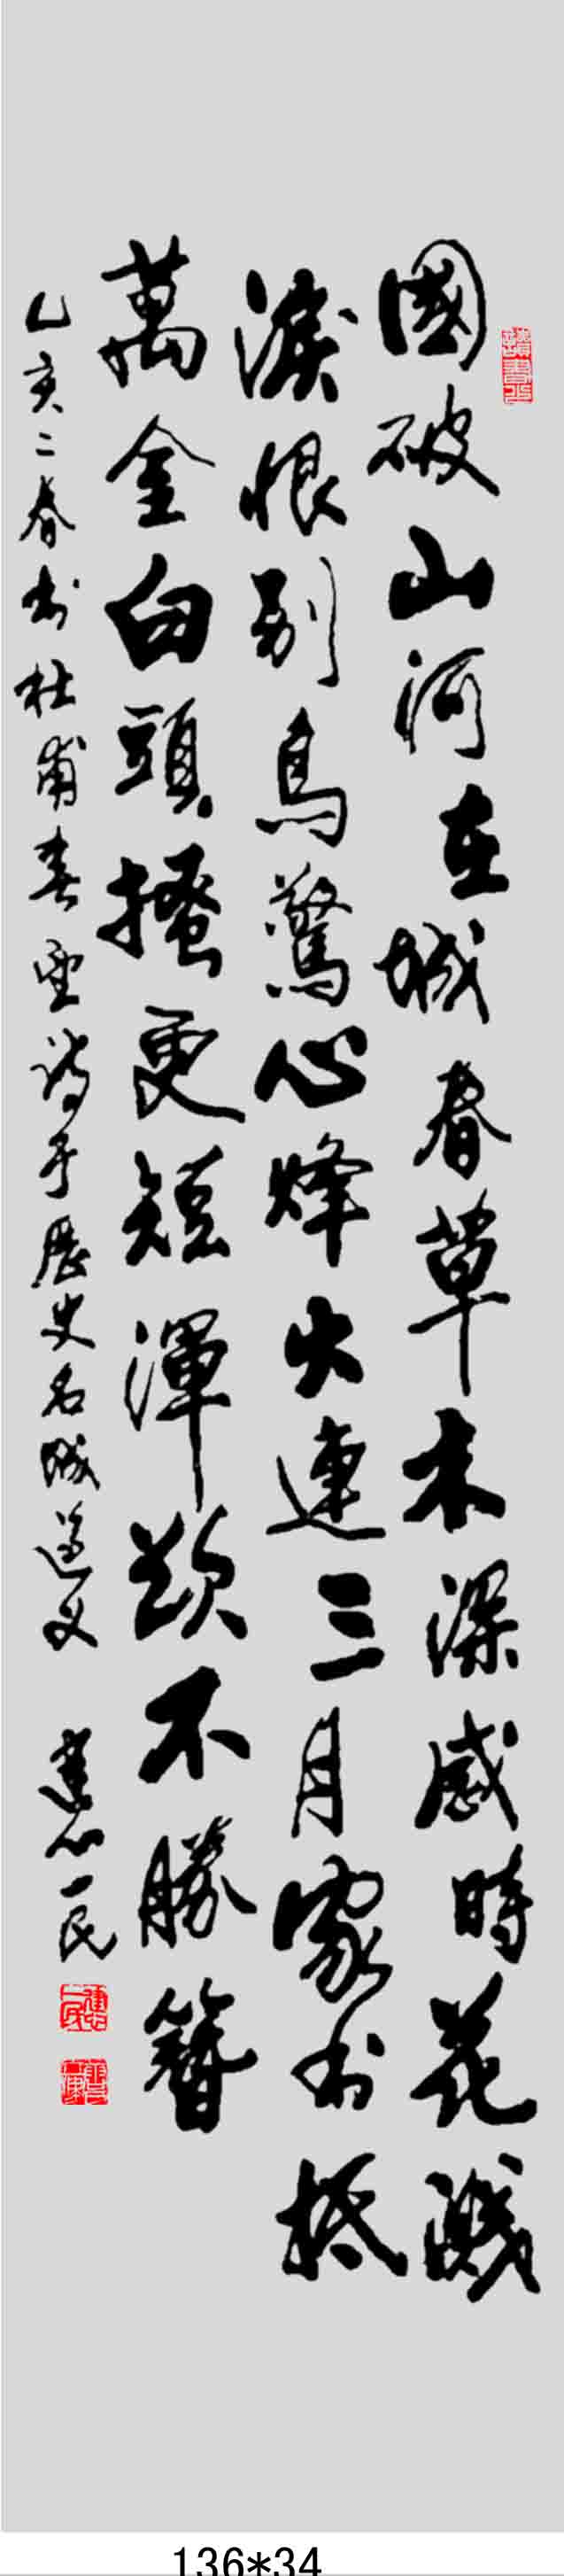 國破山河在城春草木深感時花濺
淚恨别鳥驚心烽火連三月家书抵
萬金白頭搔更短渾欲不勝簪
乙亥二春书杜甫春望诗于歷史名城遵义 一民
136*34